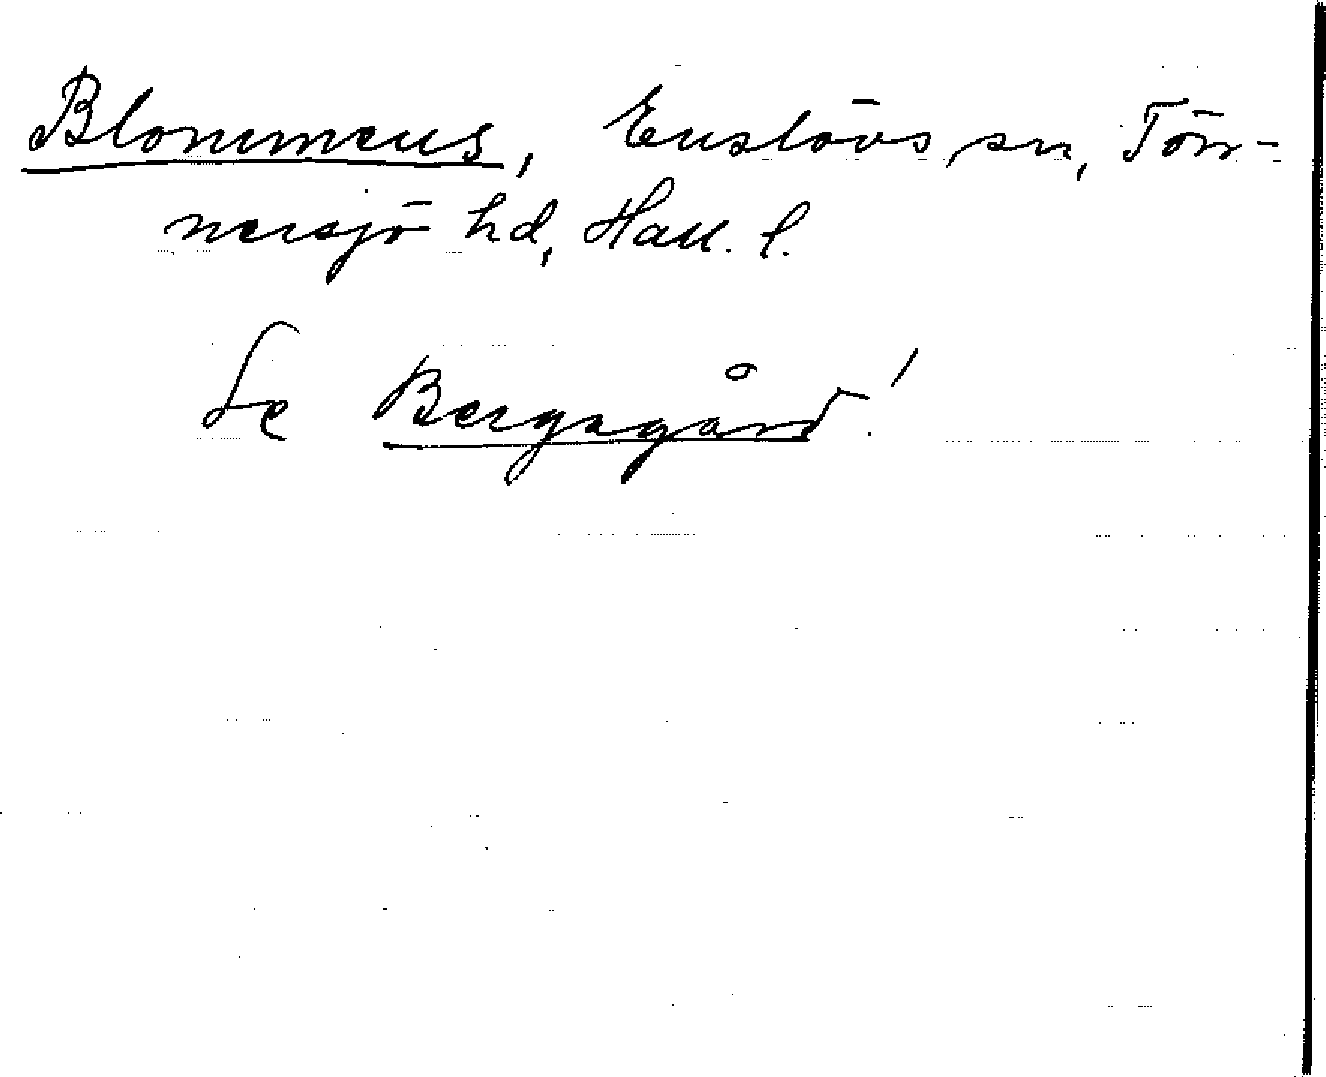 Blommeus, Enslövs sn, Tön-
nersjö hd, Hall. l.
Se Bergsgård!